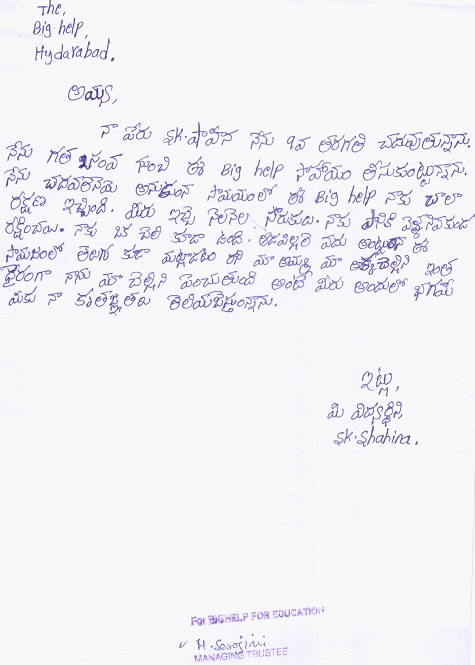 The,
Big help,
Hydarabad.
అయ్య,
నా పేరు SK.షాహీన నేను 9వ తరగతి చదువుతున్నాను.
నేను గత సంవ నుంచి ఈ Big help సాహాయం తీసుకుంటున్నాను.
నేను సామయంలో ఈ Big help నాకు చాలా
రక్షణ ఇచ్చింది. మీరు ఇచ్చె నెలనెల నాకు
నాకు ఒక చెలి కూడా ఉంది. ఈ
సామజంలో తెలుగు కూడా రాని మా అమ్మ మా ఇంత
దైరంగా నాను మా చెల్లిని పెంచుతుంది అంటే మీరు అందులో భాగమే
మీకు నా కృతజ్ఞతలు తెలియపెస్తున్నాను.
ఇట్లు,
మి విద్యార్థిని,
SK.Shahina.
For BIGHELP FOR EDUCATION
M.Sarojini
MANAGING TRUSTEE